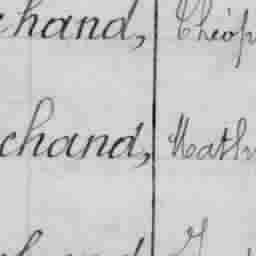 chand, Théop
chand, Math